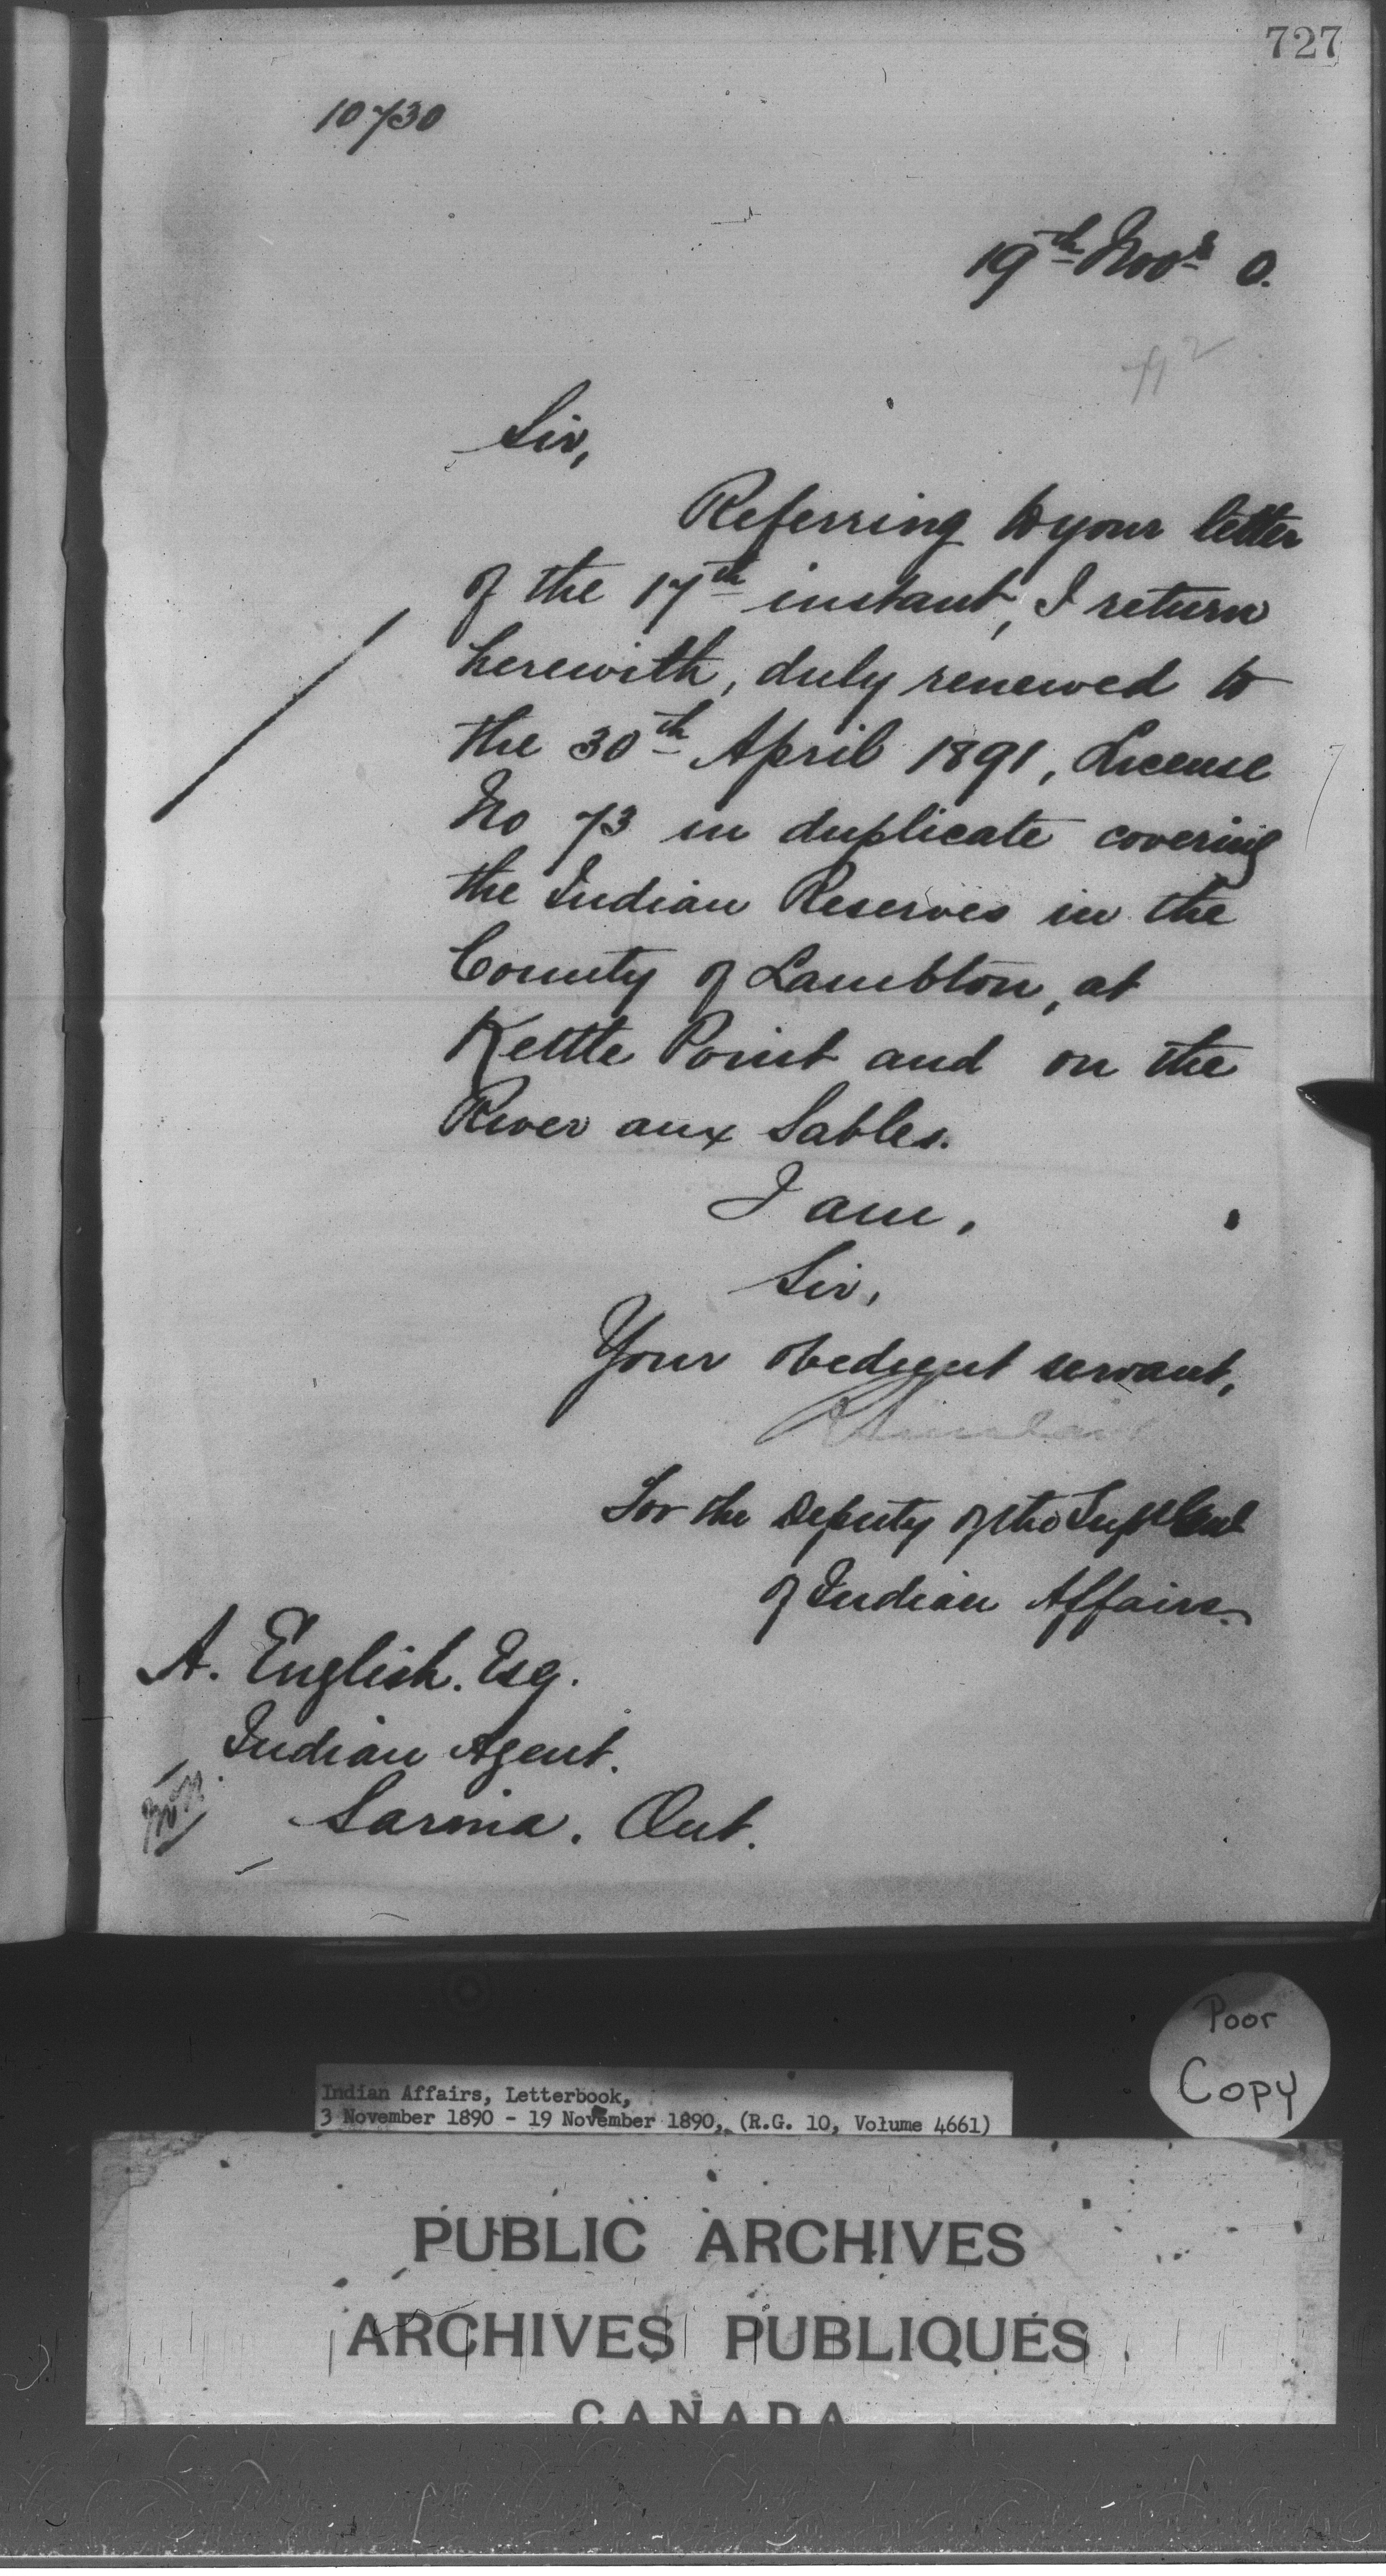 727
10730
19th Novr 0.
Sir,
Referring to your letter
of the 17th instant, I return
herewith, duly renewed to
the 30th April 1891, License
No 73 in duplicate covering
the Indian Reserves in the
County of Lambton, at
Kettle Point and on the
River aux Sables.
I am,
Sir,
Your obedient servant,
R Sinclair
For the Deputy of the Supt Genl
of Indian Affairs.
A. English. Esq.
Indian Agent.
Sarnia. Ont.
Poor
Copy
Indian Affairs, Letterbook,
3 November 1890 - 19 November 1890, (R.G. 10, Volume 4661)
PUBLIC ARCHIVES
ARCHIVES PUBLIQUES
CANADA